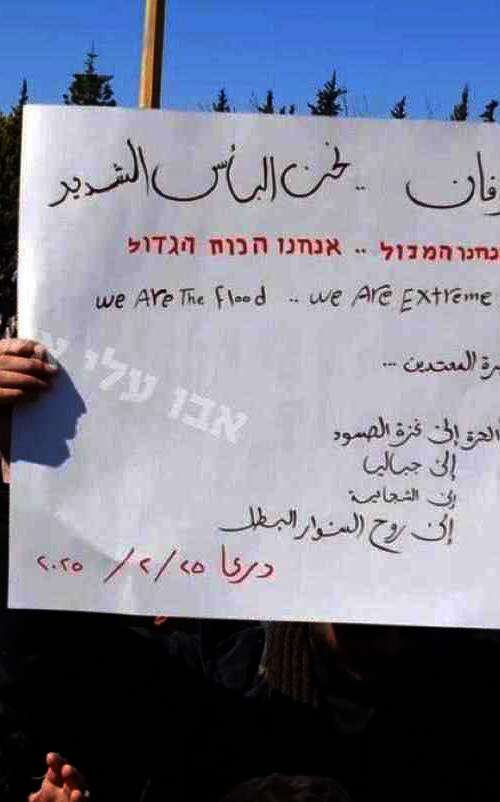 وفان .. نحن البأس الشديد
נחנו המבול .. אנחנו הכוח הגדול
we Are The Flood .. we Are Extreme
رة المعتدين ...
الحرة إلى غزة الصمود
إلى جباليا
إلى الشجاعية
إلى روح السنوار البطل
درعا ٢٥ / ٢ / ٢٠٢٥
אבו עלי א